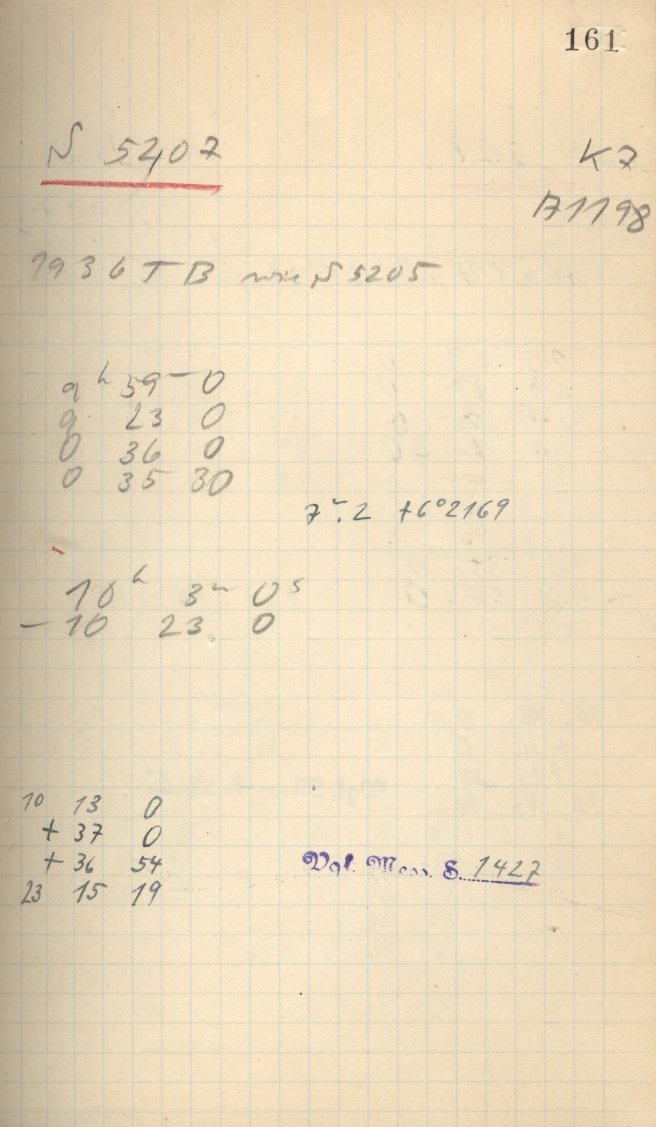 161
N 5207
K7
A1198
1936 TB wie N 5205
9ʰ 59ᵐ 0
9 23 0
0 36 0
0 35 30
7ᵐ.2 +6°2169
10ʰ 3ᵐ 0ˢ
- 10 23 0
10 13 0
+ 37 0
+ 36 54
23 15 19
Vgl. Mess. S. 1427